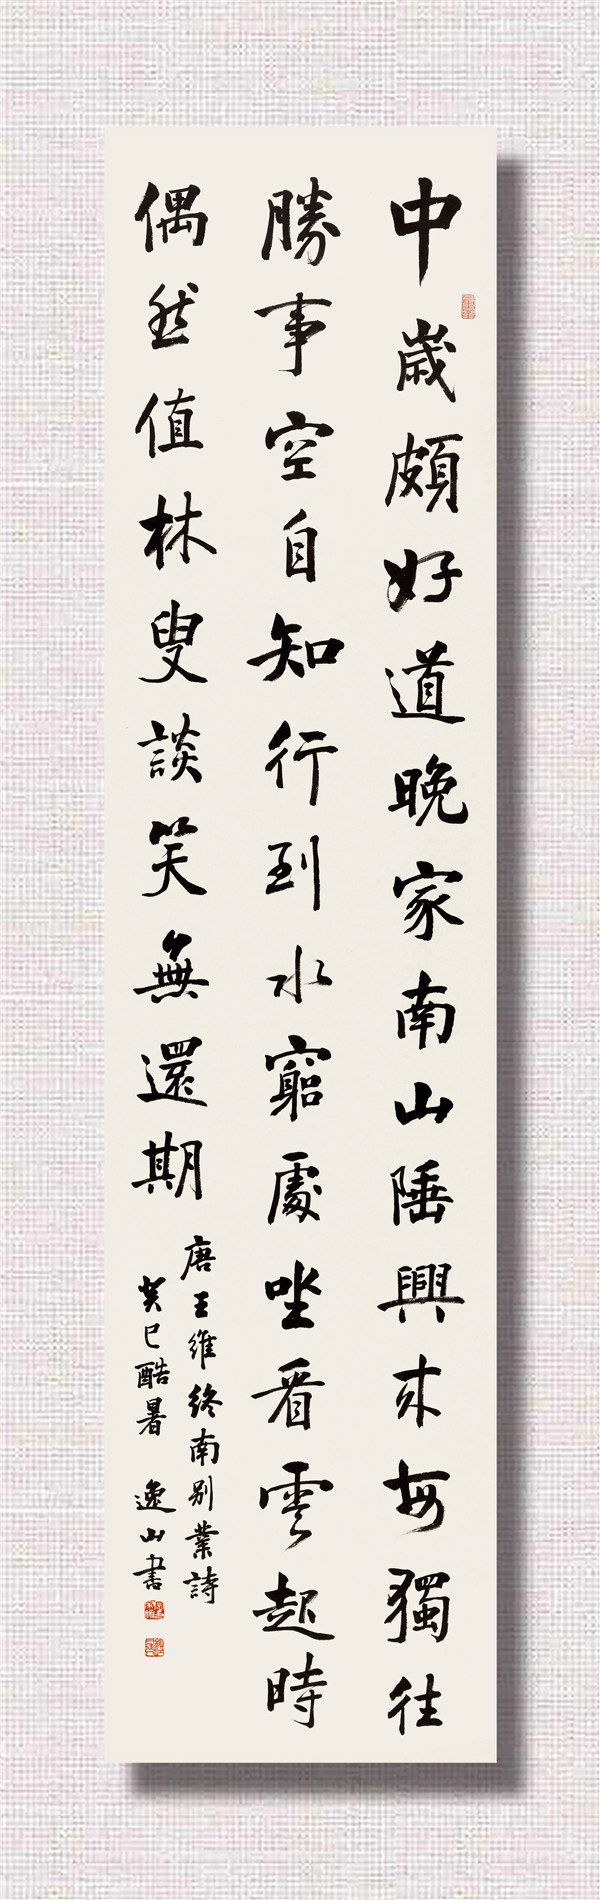 中歲頗好道晚家南山陲興來每獨往
勝事空自知行到水窮處坐看雲起時
偶然值林叟談笑無還期
唐王維終南別業詩
癸巳酷暑 逸山書